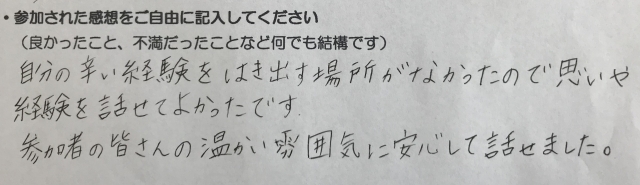 ・参加された感想をご自由に記入してください
（良かったこと、不満だったことなど何でも結構です）
自分の辛い経験をはき出す場所がなかったので思いや
経験を話せてよかったです.
参加者の皆さんの温かい雰囲気に安心して話せました。